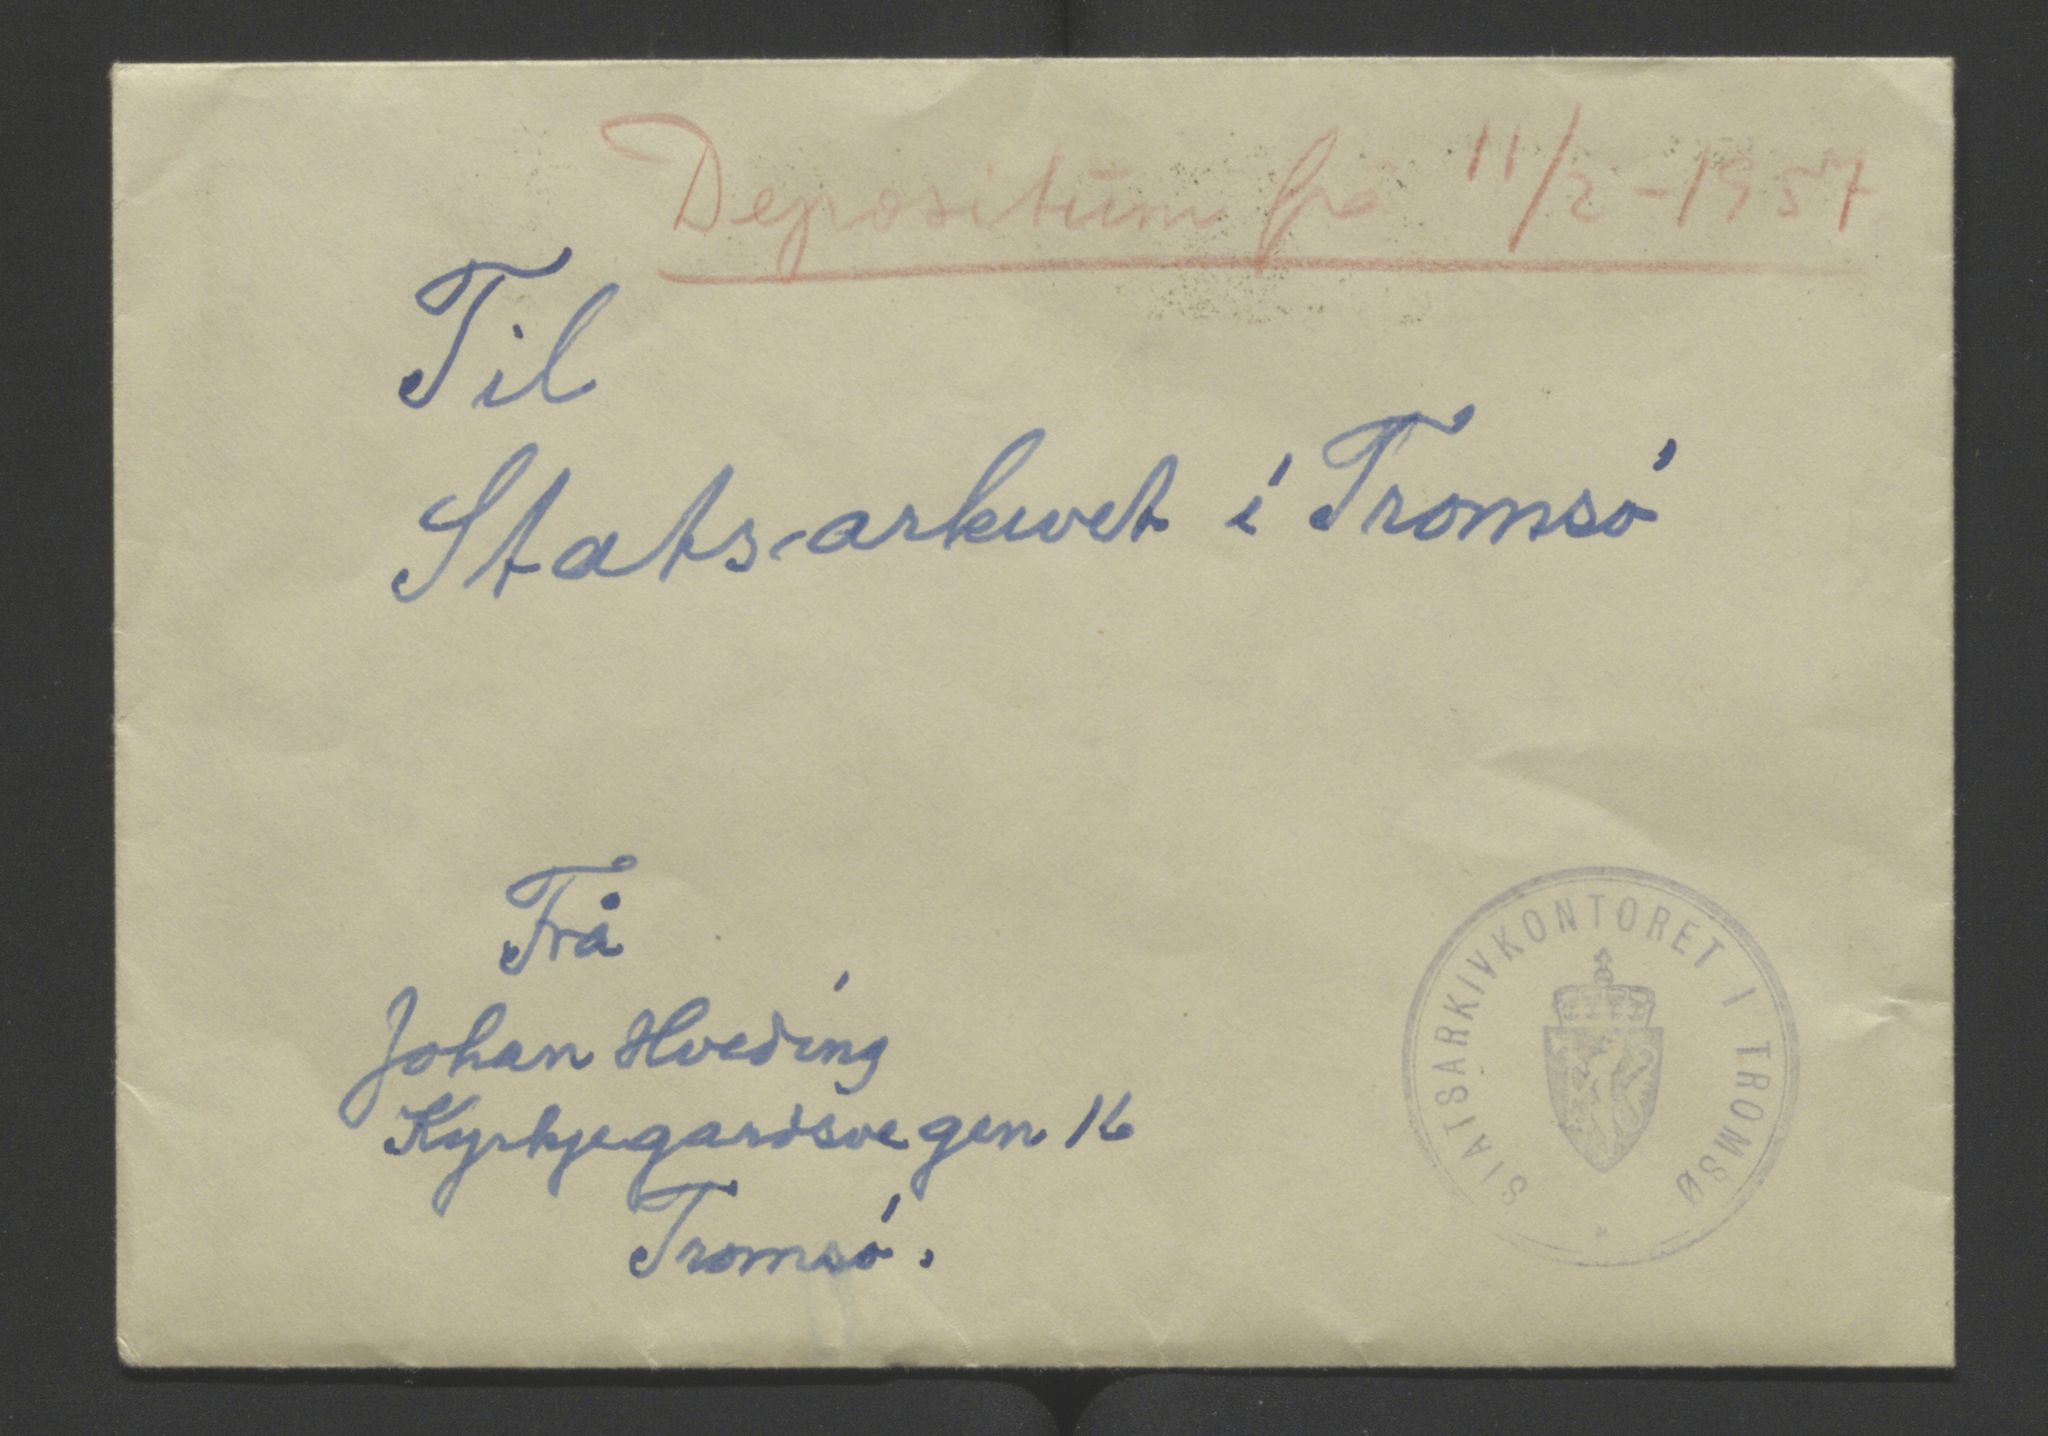 Depositum frå 11/2-1957
Til
Stats-arkivet i Tromsö
Frå
Johan Hveding
Kyrkjegardsvegen 16
Tromsö.
STATSARKIVKONTORET I TROMSØ